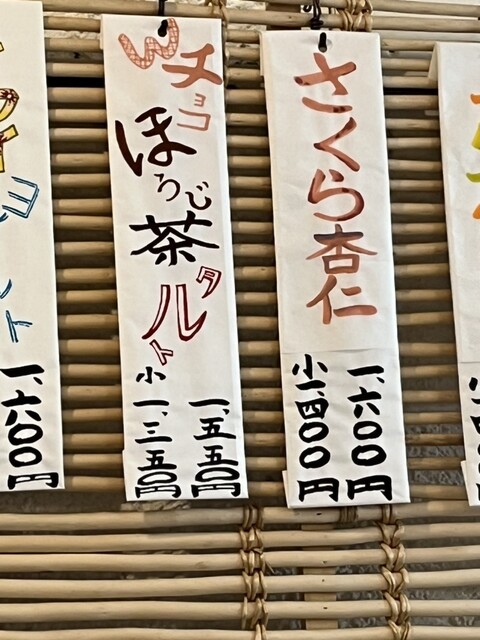 さくら杏仁
一、六〇〇円
小一四〇〇円
Wチョコ
ほうじ茶
タルト
一、五五〇円
小一、三五〇円
一、六〇〇円